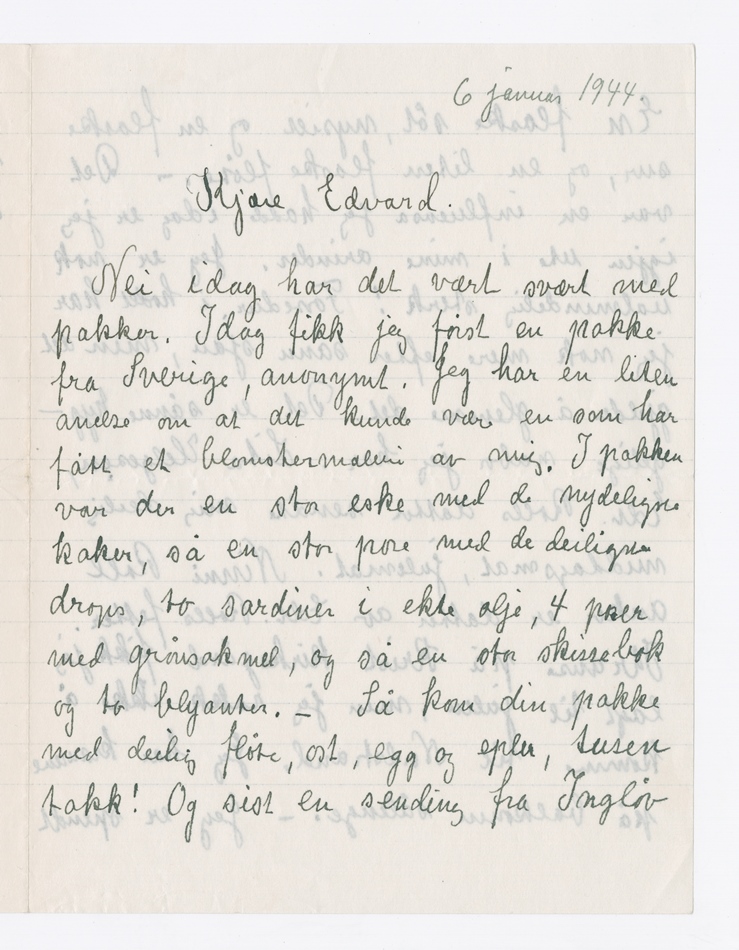 6 januar 1944.
Kjære Edvard.
Nei idag har det vært svært med
pakker. Idag fikk jeg først en pakke
fra Sverige, anonymt. Jeg har en liten
anelse om at det kunde være en som har
fått et blomstermaleri av mig. I pakken
var der en stor eske med de nydeligste
kaker, så en stor pose med de deiligste
drops, to sardiner i ekte olje, 4 poser
med grønsakmel, og så en stor skissebok
og to blyanter. – Så kom din pakke
med deilig fløte, ost, egg og epler, tusen
takk! Og sist en sending fra Ingløv